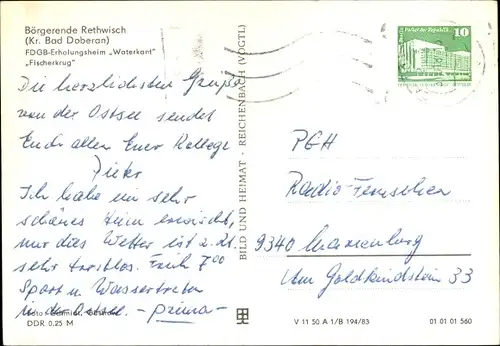 Börgerende Rethwisch
(Kr. Bad Doberan)
FDGB-Erholungsheim „Waterkant"
„Fischerkrug"
Die herzlichsten Grüße
von der Ostsee sendet
Euch allen Euer Kollege
Ich habe ein sehr
schönes Heim erwischt,
nur das Wetter ist z. Zt.
sehr trostlos. Früh 7⁰⁰
Sport u. Wassertreten
in der Ostsee. - prima -
DDR 0.25 M
BILD UND HEIMAT · REICHENBACH (VOGTL)
Palast der Republik 10
PGH
Radio Fernsehen
9340 Marienberg
Am Goldkindstein 33
V 11 50 A 1/B 194/83
01 01 01 560